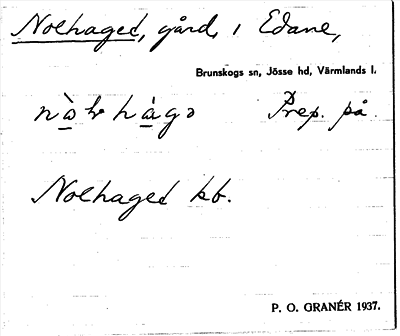 Nolhaged, gård, i Edane,
Brunskogs sn, Jösse hd, Värmlands l.
Prep. på.
Nolhaged kb.
P. O. GRANÉR 1937.